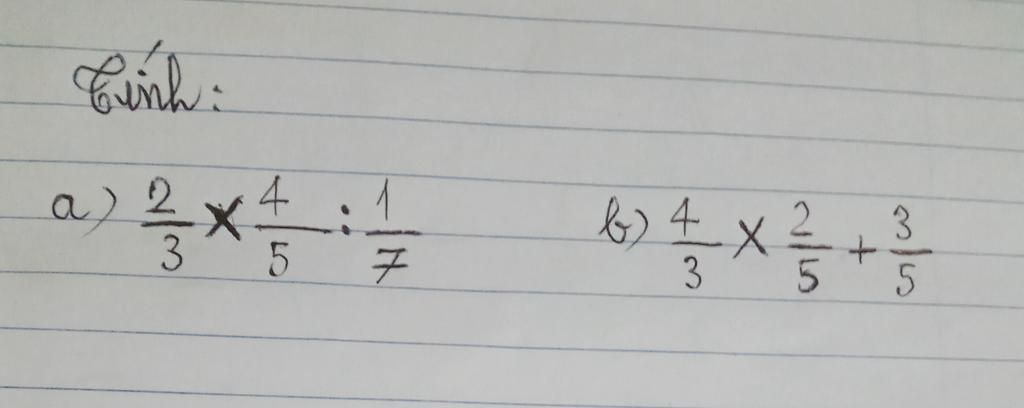 Tính:
a) 2/3 × 4/5 : 1/7 b) 4/3 × 2/5 + 3/5